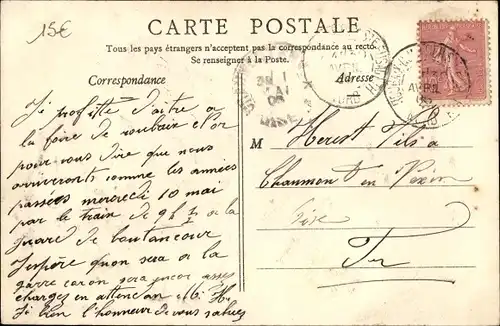 15€
CARTE POSTALE
Tous les pays étrangers n'acceptent pas la correspondance au recto.
Se renseigner à la Poste.
Correspondance
Adresse
Je profitte d'aitre a
la foire de
pour vous dire que nous
arriverons comme les années
passées mercredi 10 mai
par le train de 9h ½ a la
guare de
J'espère quon sera a la
garre car on sera encor asses
charges en attendan
Je bien l'honneur de vous
M Herest Fils a
Chaumon en Vexin
Oise
AVRIL